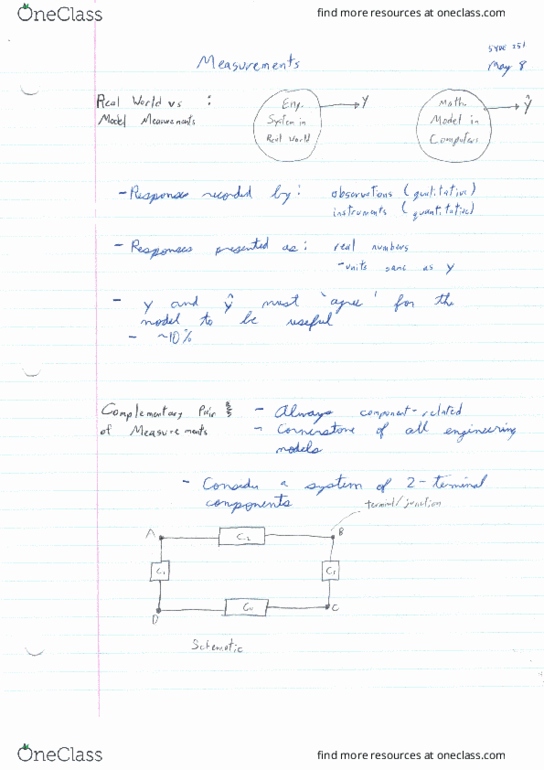 OneClass
find more resources at oneclass.com
SYDE 351
May 8
Measurements
Real World vs :
Model Measurements
Eng.
System in
Real World
Y
Math
Model in
Computers
ŷ
- Responses recorded by: observations (qualitative)
instruments (quantitative)
- Responses presented as: real numbers
- units same as y
- y and ŷ must 'agree' for the
model to be useful
- ~10%
Complementary Pair
of Measurements
- Always component-related
- Cornerstone of all engineering
models
- Consider a system of 2-terminal
components
terminal/junction
A
C2
B
C1
C3
D
C4
C
Schematic
OneClass
find more resources at oneclass.com